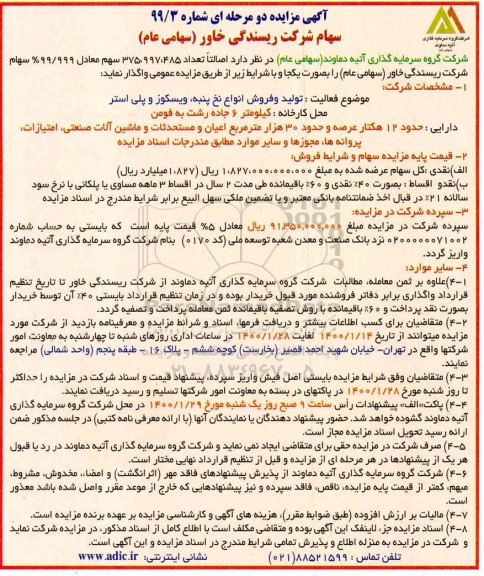 آگهی مزایده دو مرحله ای شماره ۹۹/۳
سهام شرکت ریسندگی خاور (سهامی عام)
شرکت گروه سرمایه گذاری
آتیه دماوند
شرکت گروه سرمایه گذاری آتیه دماوند(سهامی عام) در نظر دارد اصالتاً تعداد ۳۷۵،۹۹۷،۴۸۵ سهم معادل ۹۹/۹۹۹% سهام
شرکت ریسندگی خاور (سهامی عام) را بصورت یکجا و با شرایط زیر از طریق مزایده عمومی واگذار نماید:
۱- مشخصات شرکت:
موضوع فعالیت : تولید وفروش انواع نخ پنبه، ویسکوز و پلی استر
محل کارخانه : کیلومتر ۶ جاده رشت به فومن
دارایی : حدود ۱۲ هکتار عرصه و حدود ۳۰ هزار مترمربع اعیان و مستحدثات و ماشین آلات صنعتی، امتیازات،
پروانه ها، مجوزها و سایر موارد مطابق مندرجات اسناد مزایده
۲- قیمت پایه مزایده سهام و شرایط فروش:
الف)نقدی :کل سهام عرضه شده به مبلغ ۱،۸۲۷،۰۰۰،۰۰۰،۰۰۰ ریال (۱،۸۲۷میلیارد ریال)
ب)نقدی واقساط : بصورت ۴۰% نقدی و ۶۰% باقیمانده طی مدت ۲ سال در اقساط ۳ ماهه مساوی یا پلکانی با نرخ سود
سالانه ۲۱% در قبال اخذ ضمانتنامه بانکی معتبر و یا تضمین ملکی سهل البیع برابر شرایط مندرج در اسناد مزایده
۳- سپرده شرکت در مزایده:
سپرده شرکت در مزایده مبلغ ۹۱،۳۵۰،۰۰۰،۰۰۰ ریال معادل ۵% قیمت پایه است که بایستی به حساب شماره
۰۲۰۰۰۰۰۰۷۱۰۰۲ نزد بانک صنعت و معدن شعبه توسعه ملی (کد ۰۱۷۰) بنام شرکت گروه سرمایه گذاری آتیه دماوند
واریز گردد.
۴- سایر موارد:
۴-۱)علاوه بر ثمن معامله، مطالبات شرکت گروه سرمایه گذاری آتیه دماوند از شرکت ریسندگی خاور تا تاریخ تنظیم
قرارداد واگذاری برابر دفاتر فروشنده مورد قبول خریدار بوده و در زمان تنظیم قرارداد بایستی ۴۰% آن توسط خریدار
بصورت نقد پرداخت و ۶۰% باقیمانده با روش تصفیه باقیمانده ثمن معامله پرداخت و تصفیه گردد.
۴-۲) متقاضیان برای کسب اطلاعات بیشتر و دریافت فرمها، اسناد و شرایط مزایده و معرفینامه بازدید از شرکت مورد
مزایده میتوانند از تاریخ ۱۴۰۰/۱/۱۴ لغایت ۱۴۰۰/۱/۲۸ در ساعات اداری روزهای شنبه تا چهارشنبه به معاونت امور
شرکتها واقع در تهران- خیابان شهید احمد قصیر (بخارست) کوچه ششم – پلاک ۱۶ – طبقه پنجم (واحد شمالی) مراجعه
نمایند.
۴-۳) متقاضیان وفق شرایط مزایده بایستی اصل فیش واریز سپرده، پیشنهاد قیمت و اسناد شرکت در مزایده را حداکثر
تا روز شنبه مورخ ۱۴۰۰/۱/۲۸ در پاکتهای در بسته به معاونت امور شرکتها تسلیم و رسید دریافت نمایند.
۴-۴) پاکت«الف» پیشنهادات رأس ساعت ۹ صبح روز یک شنبه مورخ ۱۴۰۰/۱/۲۹ در محل شرکت گروه سرمایه گذاری
آتیه دماوند گشوده خواهد شد. حضور پیشنهاد دهندگان یا نمایندگان آنها (با ارائه معرفی نامه کتبی) در جلسه مذکور ضمن
ارائه رسید تحویل اسناد مزایده مجاز است.
۴-۵) صرف شرکت در مزایده حقی برای متقاضی ایجاد نمی نماید و شرکت گروه سرمایه گذاری آتیه دماوند در رد یا قبول
هر یک از پیشنهادها در هر مرحله ای از مزایده و قبل از تنظیم قرارداد نهایی مختار است.
۴-۶) شرکت گروه سرمایه گذاری آتیه دماوند از پذیرش پیشنهادهای فاقد مهر (اثرانگشت) و امضا، مخدوش، مشروط،
مبهم، کمتر از قیمت پایه مزایده، ناقص، فاقد سپرده و نیز پیشنهادهایی که خارج از موعد مقرر واصل شده باشد معذور
است.
۴-۷) مالیات بر ارزش افزوده (طبق ضوابط مقرر)، هزینه های آگهی و کارشناسی مزایده بر عهده برنده مزایده است.
۴-۸) اسناد مزایده جزء لاینفک این آگهی بوده و متقاضی مکلف است با اطلاع کامل از اسناد مذکور، در مزایده شرکت نماید
و شرکت در مزایده به منزله اطلاع و پذیرش تمامی شرایط مندرج در اسناد مزایده و این آگهی است.
تلفن تماس : ۸۸۵۲۱۵۹۹(۰۲۱) نشانی اینترنتی: www.adic.ir